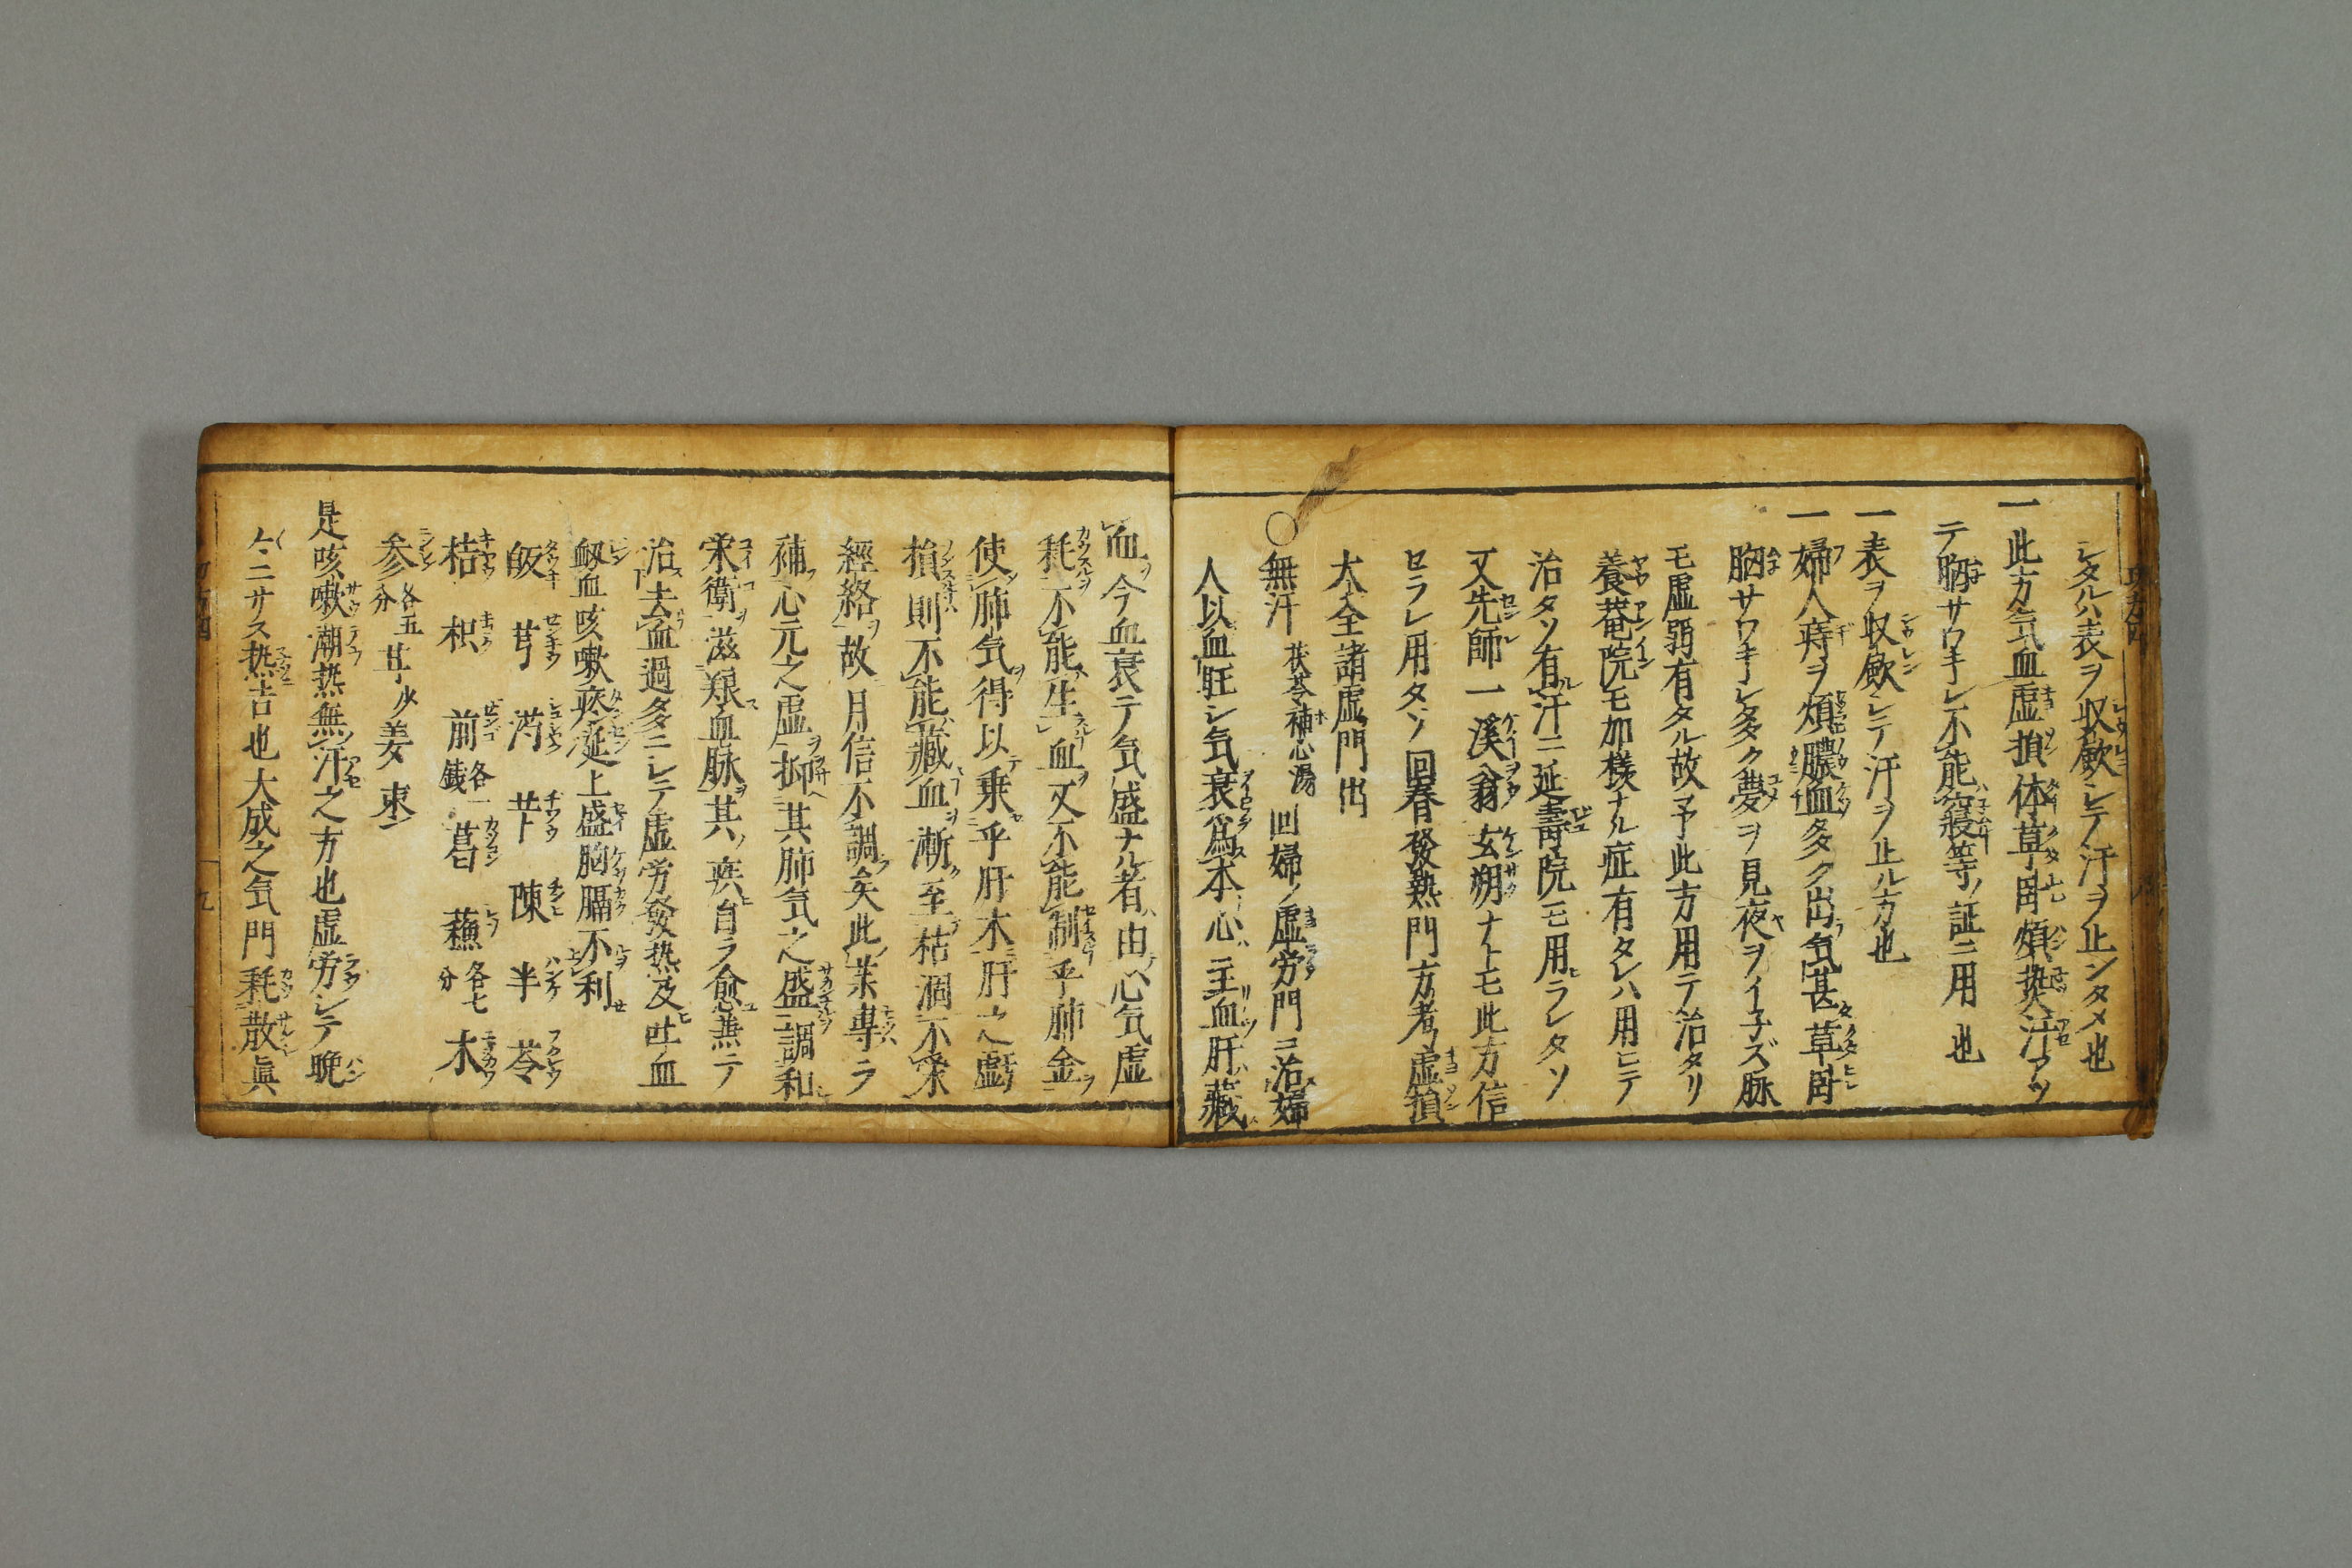 シタルハ表ヲ収歛シテ汗ヲ止ンタメ也
一此方気血虚損体草臥煩熱汗アツ
テ胸サワキシ不能寝等ノ証ニ用也
一表ヲ収歛シテ汗ヲ止ル方也
一婦人痔ヲ煩膿血多ク出気甚草臥
胸サワキシ多ク夢ヲ見夜ヲイ子ズ脉
モ虚弱有タル故予此方用テ治タリ
養菴院モ加様ナル症有タレハ用ヒテ
治タソ有汗ニ延壽院モ用ラレタソ
又先師一溪翁玄朔ナトモ此方信
セラレ用タソ回春發熱門方者虚損
大全諸虚門出
○無汗 茯苓補心湯 回婦ノ虚労門ニ治婦
人以血旺シ気衰爲本心ハ主血肝ハ藏
血今血衰テ気盛ナル者ハ由心気虚
耗不能生血又不能制乎肺金
使肺気得以乗乎肝木肝之虧
損則不能藏血漸至枯涸不栄
經絡故月信不調矣此藥專ラ
補心元之虚抑其肺気之盛調和
栄衛滋養血脉其疾自ラ愈兼テ
治去血過多ニシテ虚労發热及吐血
衂血咳嗽痰涎上盛胸膈不利
皈 芎 芍 芐 陳 半 苓
桔 枳 前各一錢 葛 蘓各七分 木
参各五分 甘少 姜 枣
是咳嗽潮热無汗之方也虚労シテ晩
々ニサス热吉也大成之気門耗散眞